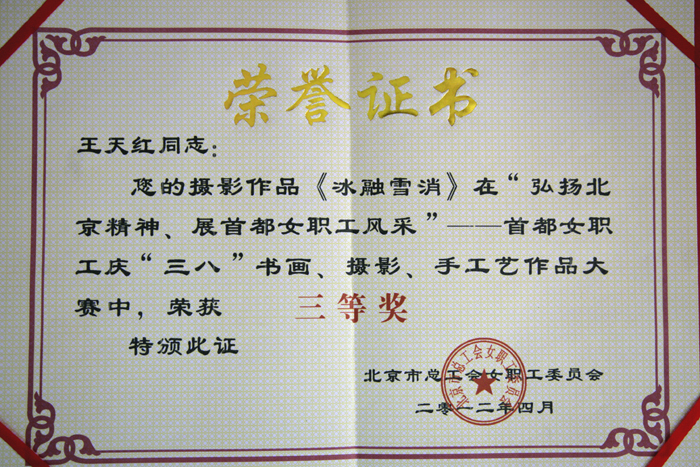 荣誉证书
王天红同志：
您的摄影作品《冰融雪消》在“弘扬北
京精神、展首都女职工风采”——首都女职
工庆“三八”书画、摄影、手工艺作品大
赛中，荣获 三等奖
特颁此证
北京市总工会女职工委员会
二零一二年四月
北京市总工会女职工委员会